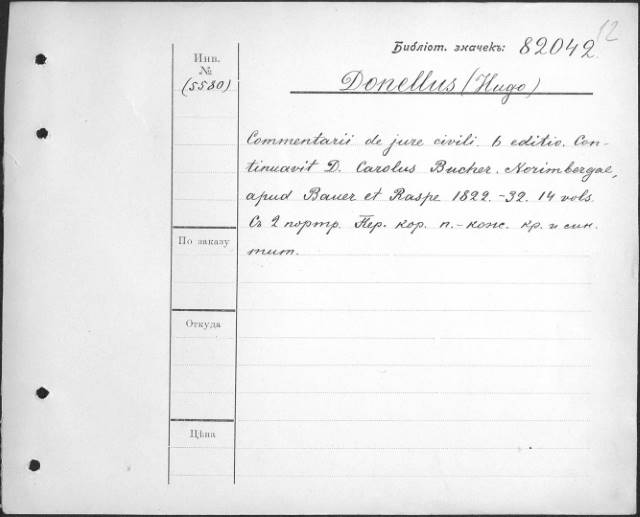 12
Библіот. значекъ: 82042
Инв.
№
(5580)
Donellus (Hugo)
Commentarii de jure civili. 6 editio. Con-
tinuavit D. Carolus Bucher. Norimbergae,
apud Bauer et Raspe 1822.-32. 14 vols.
Съ 2 портр. Пер. кор. п.-кож. кр. и син.
тит.
По заказу
Откуда
Цѣна